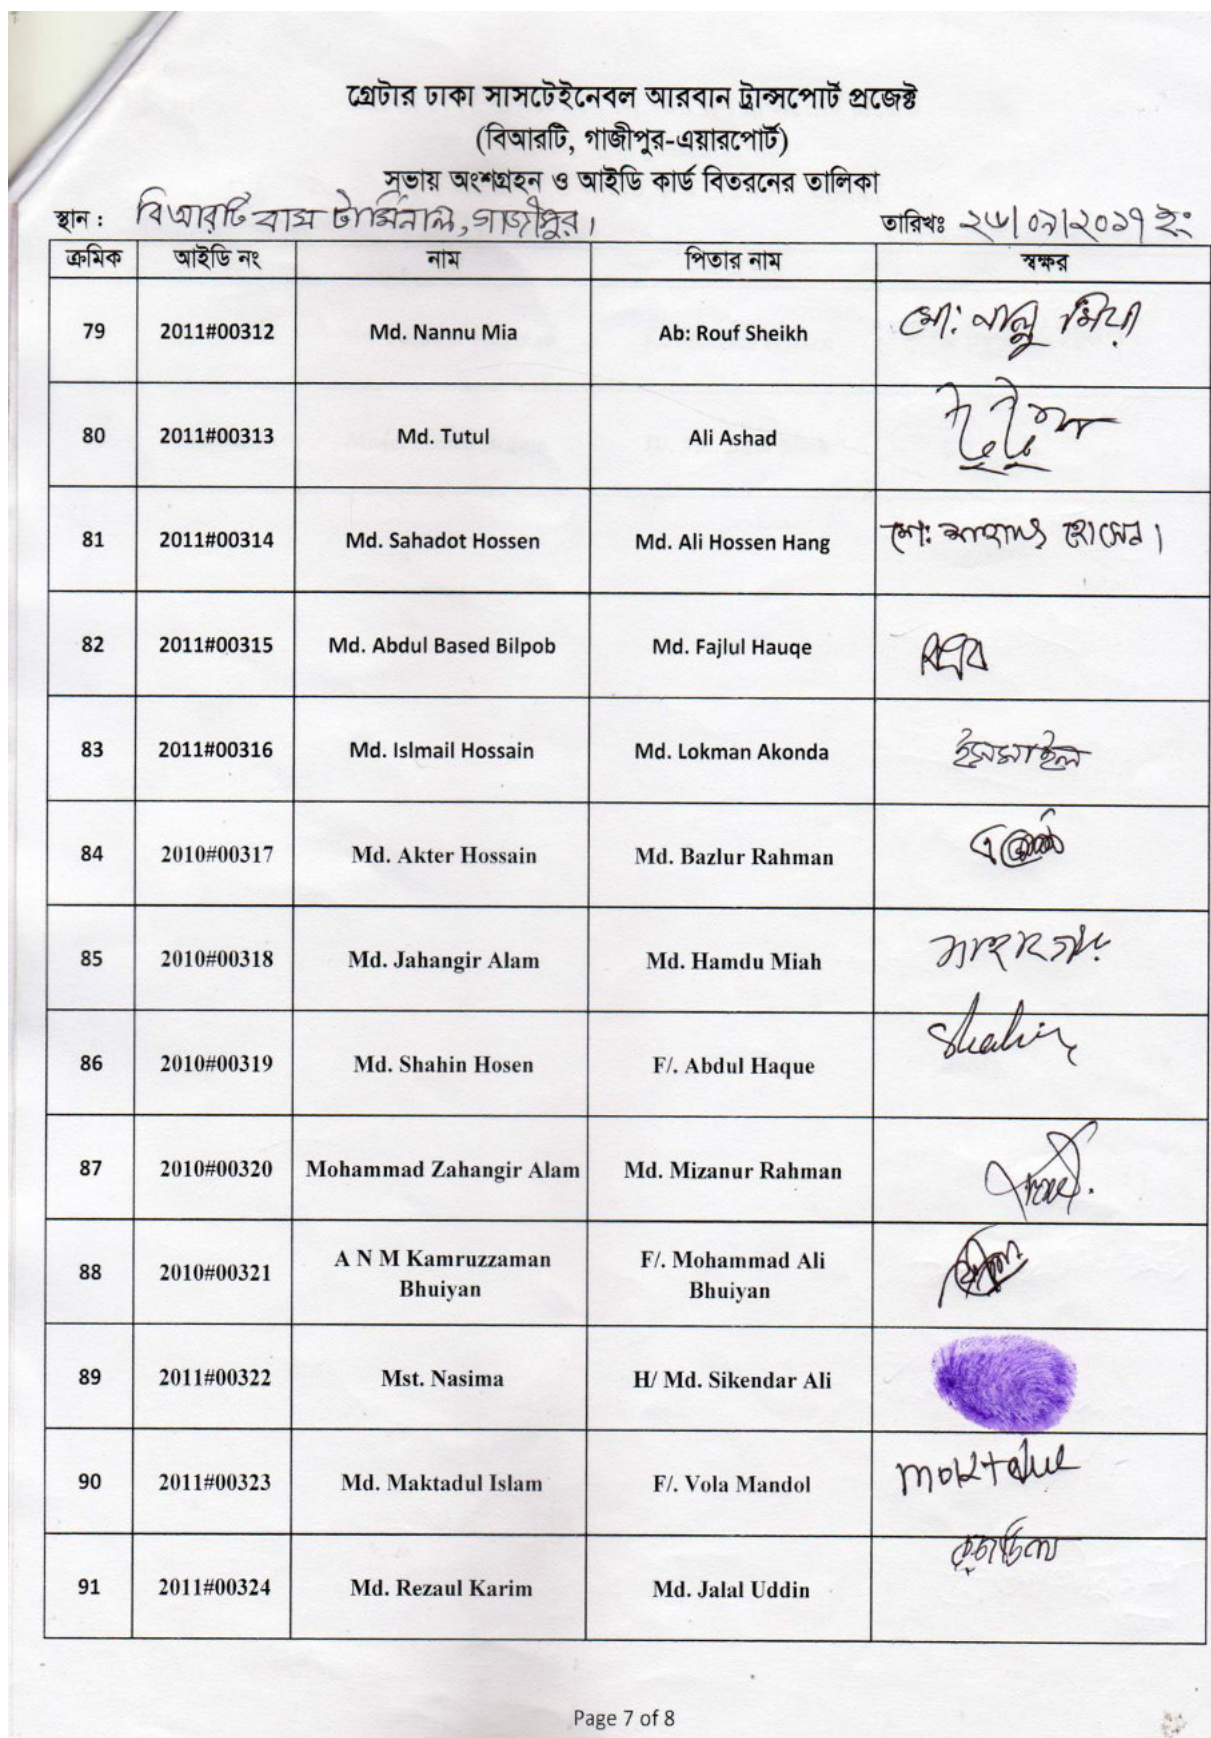 গ্রেটার ঢাকা সাসটেইনেবল আরবান ট্রান্সপোর্ট প্রজেক্ট
(বিআরটি, গাজীপুর-এয়ারপোর্ট)
সভায় অংশগ্রহন ও আইডি কার্ড বিতরনের তালিকা
স্থান : বিআরটি বাস টার্মিনাল, গাজীপুর। তারিখঃ ২৬/০৭/২০১৭ ইং
ক্রমিক আইডি নং নাম পিতার নাম স্বক্ষর
79 2011#00312 Md. Nannu Mia Ab: Rouf Sheikh মো: নান্নু মিয়া
80 2011#00313 Md. Tutul Ali Ashad টুটুল
81 2011#00314 Md. Sahadot Hossen Md. Ali Hossen Hang মো: সাহাদৎ হোসেন।
82 2011#00315 Md. Abdul Based Bilpob Md. Fajlul Hauqe
83 2011#00316 Md. Islmail Hossain Md. Lokman Akonda ইসমাইল
84 2010#00317 Md. Akter Hossain Md. Bazlur Rahman
85 2010#00318 Md. Jahangir Alam Md. Hamdu Miah
86 2010#00319 Md. Shahin Hosen F/. Abdul Haque Shahin
87 2010#00320 Mohammad Zahangir Alam Md. Mizanur Rahman
88 2010#00321 A N M Kamruzzaman Bhuiyan F/. Mohammad Ali Bhuiyan
89 2011#00322 Mst. Nasima H/ Md. Sikendar Ali
90 2011#00323 Md. Maktadul Islam F/. Vola Mandol
91 2011#00324 Md. Rezaul Karim Md. Jalal Uddin
Page 7 of 8